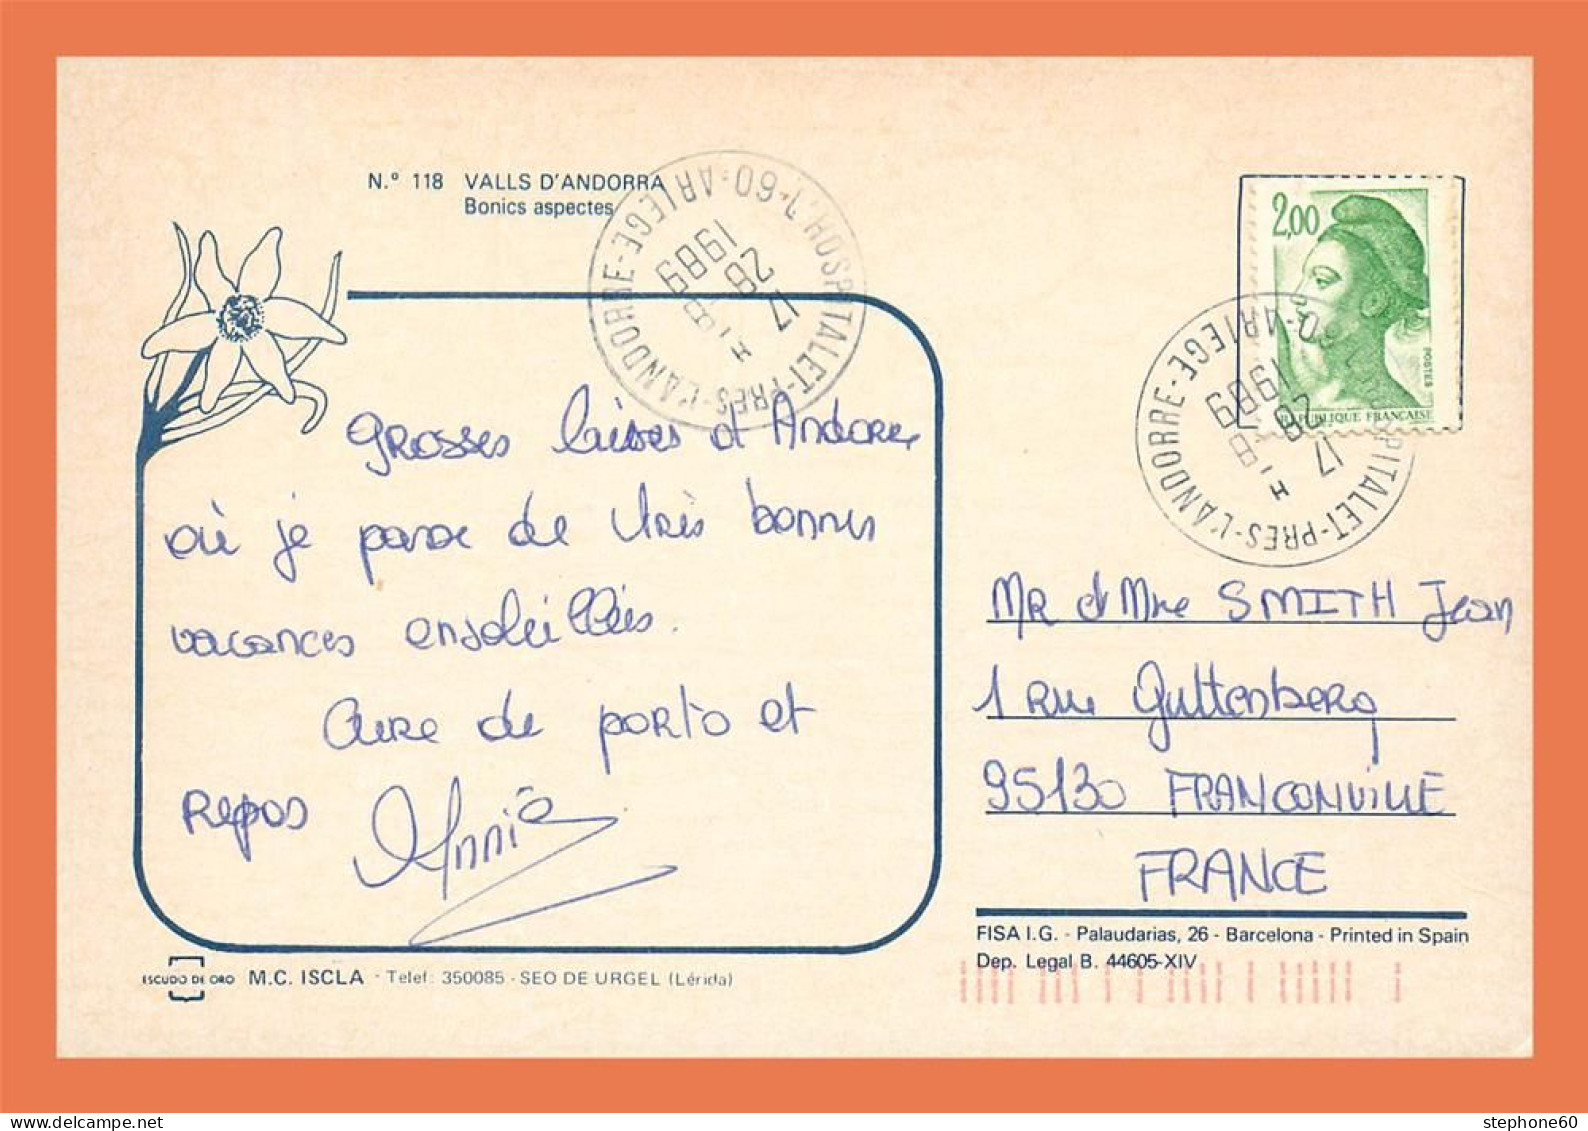 N.º 118 VALLS D'ANDORRA
Bonics aspectes
L'HOSPITALET-PRES-L'ANDORRE-ARIEGE-09
17 H
28 -8
1989
2,00
POSTES
REPUBLIQUE FRANÇAISE
L'HOSPITALET-PRES-L'ANDORRE-ARIEGE-09
17 H
28 -8
1989
Grosses bises d'Andorre
où je passe de très bonnes
vacances ensoleillées.
Cure de porto et
repos Annie
Mr et Mme SMITH Jean
1 Rue Guttenberg
95130 FRANCONVILLE
FRANCE
FISA I.G. - Palaudarias, 26 - Barcelona - Printed in Spain
Dep. Legal B. 44605-XIV
ESCUDO DE ORO M.C. ISCLA - Telef: 350085 - SEO DE URGEL (Lérida)
stephone60